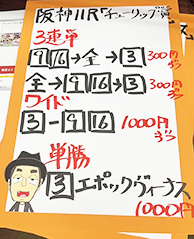 阪神11R「チューリップ賞」
3連単
9 16→全→3 300円ずつ
全→9 16→3 300円ずつ
ワイド
3-9 16 1000円ずつ
単勝
3エポックヴィーナス
1000円